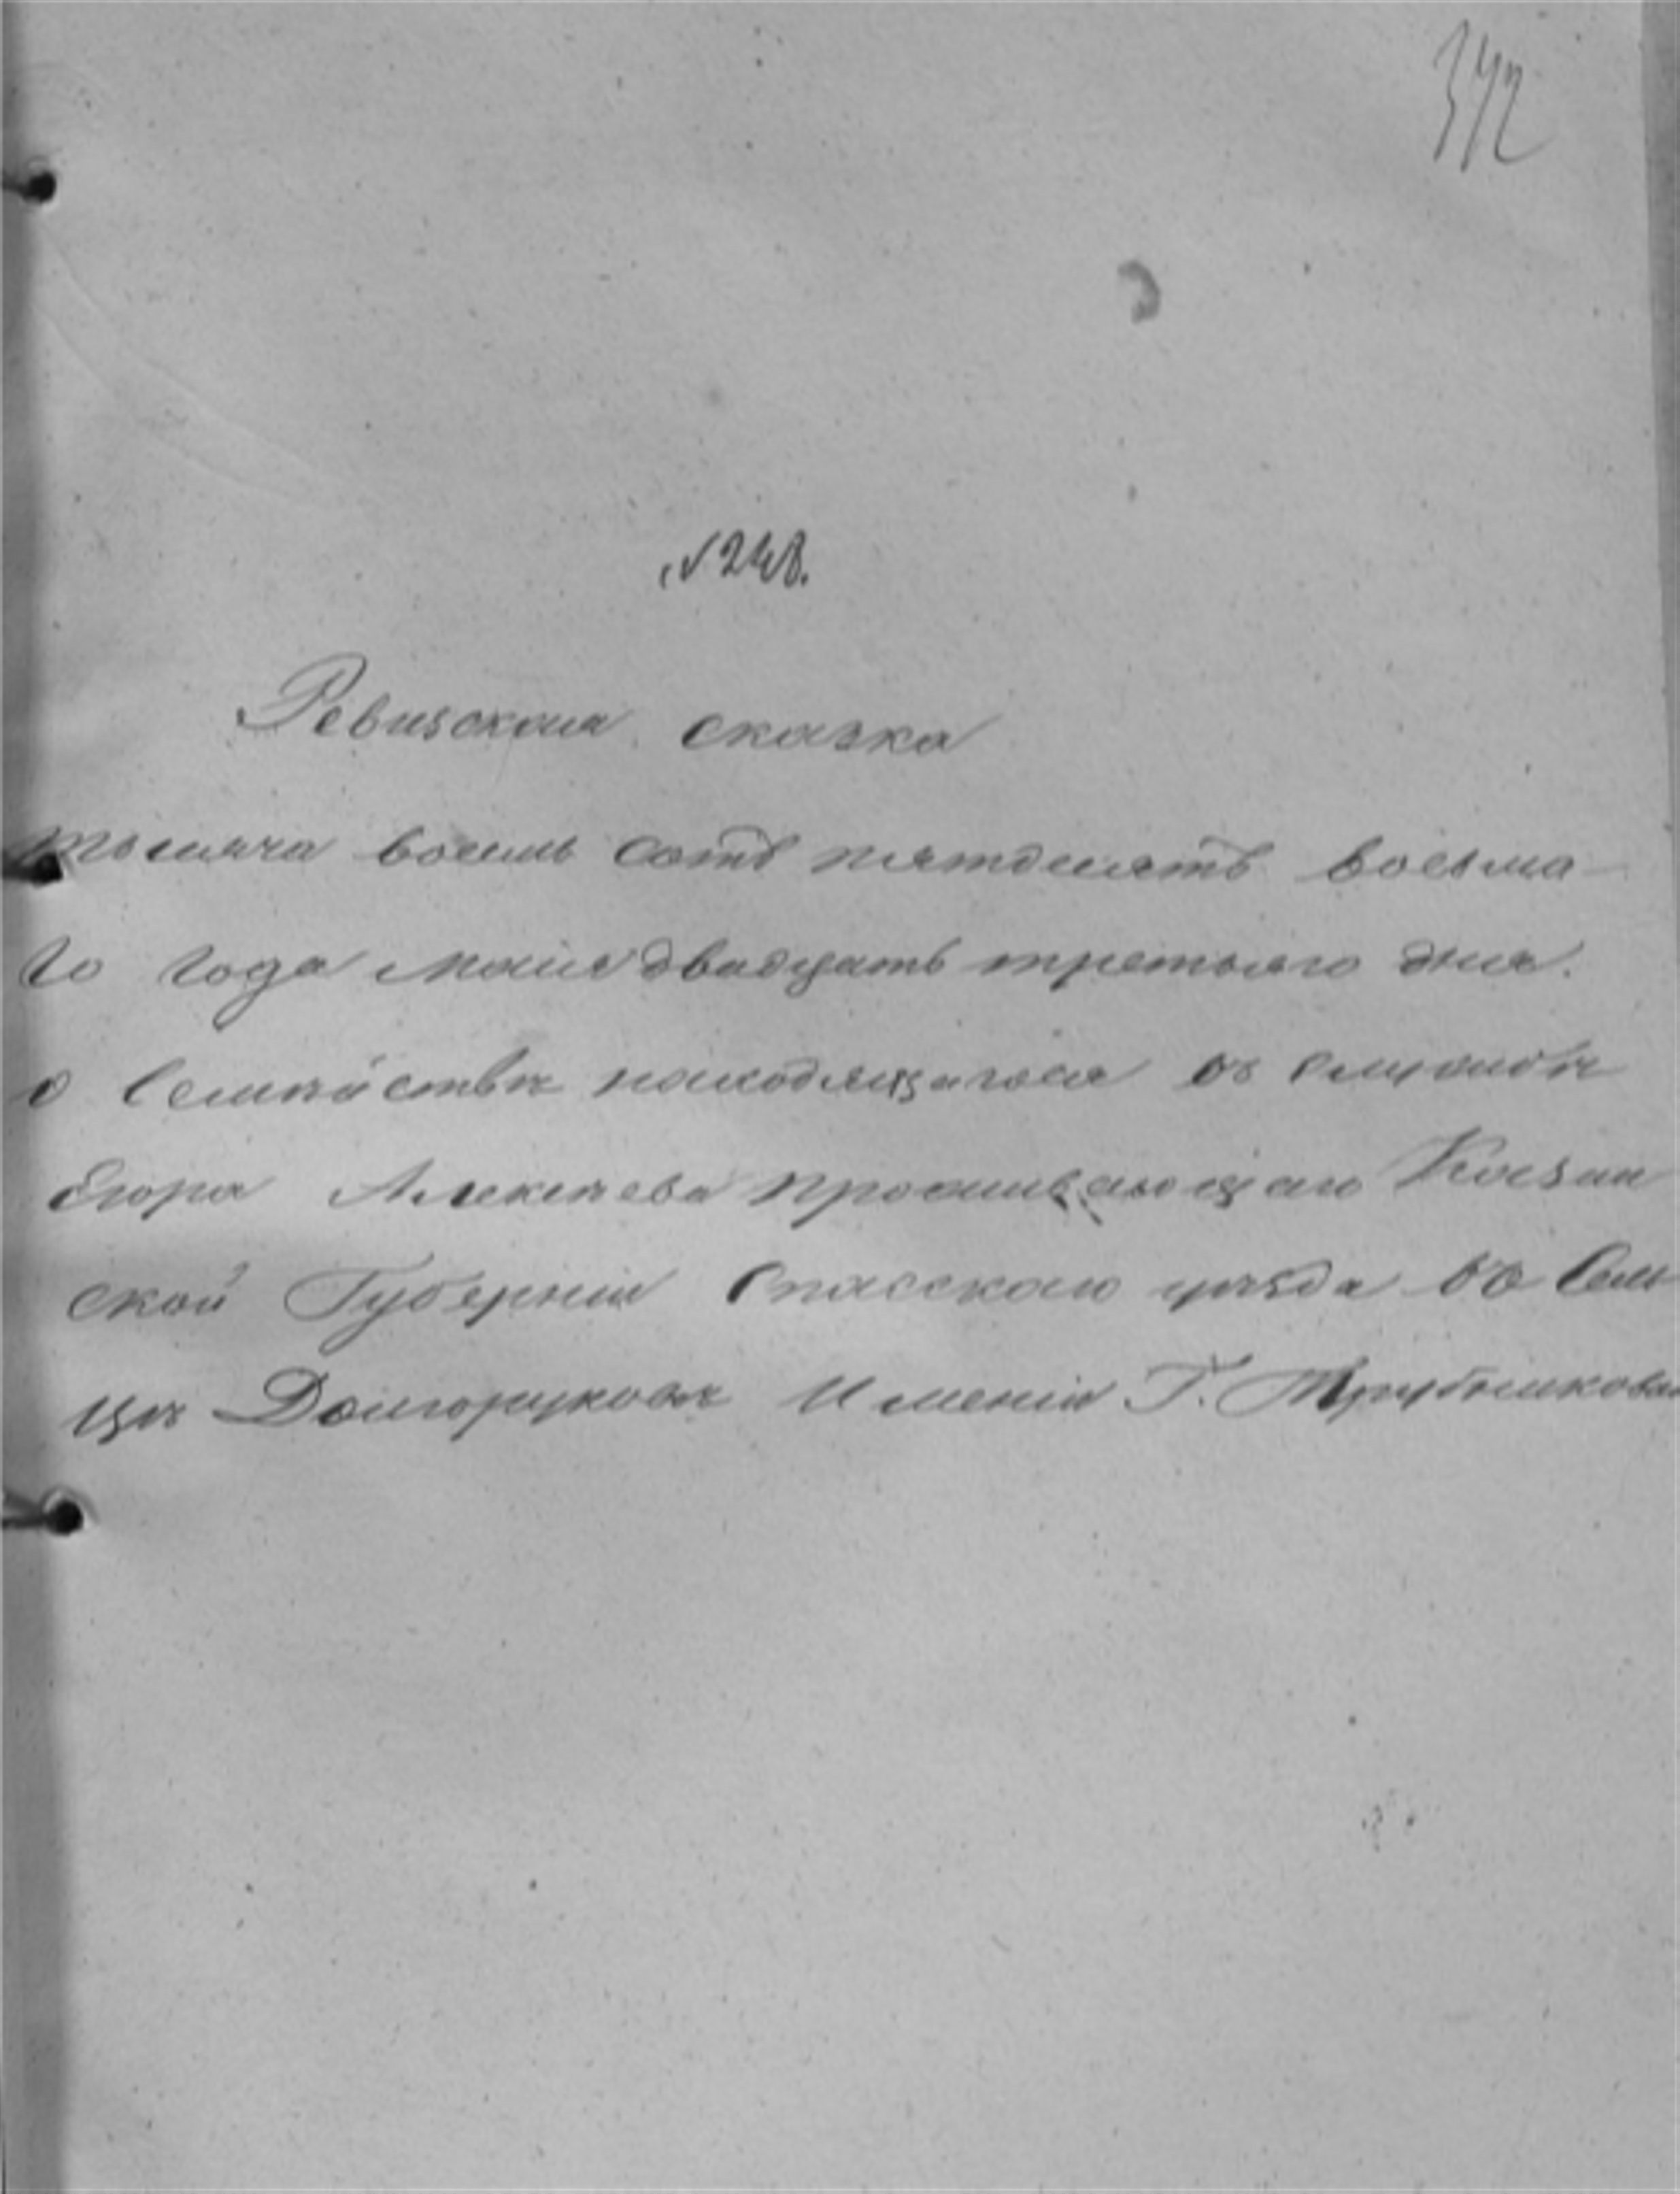 342
№ 248.
Ревизская сказка
тысяча восемь сотъ пятдесятъ восьма-
го года маія двадцать третьяго дня.
о Семѣйствѣ находящагося въ
Егора Алексѣева проживающаго Казан
ской Губерніи Спасскаго уѣзда въ Сель
цѣ Долгоруковѣ Именіи Г.